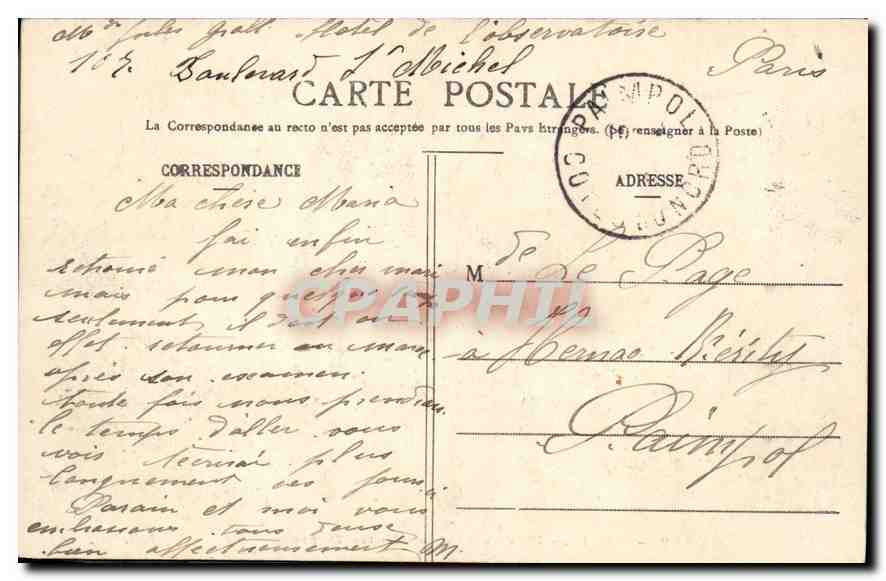 Mme Jules Gall Hotel de l'observatoire
107. Boulevard St Michel Paris
CARTE POSTALE
La Correspondance au recto n'est pas acceptée par tous les Pays Etrangers. (Se renseigner à la Poste)
PAIMPOL
COTES-DU-NORD
CORRESPONDANCE
ADRESSE
Ma chère Maria
j'ai enfin
retrouvé mon cher mari
mais pour quelques
seulement, il doit en
effet retourner au
après son examen.
toute fois nous prendrons
le temps d'aller vous
voir t'écrirai plus
longuement ces jours ci
Parain et moi vous
embrassons tous deux
bien affectueusement M.
M de Le Page
à Kernoa Kérity
Paimpol
CPAPHIL